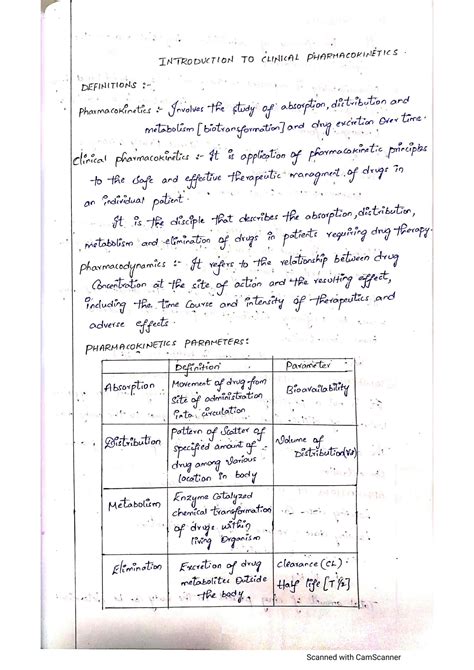 INTRODUCTION TO CLINICAL PHARMACOKINETICS.
DEFINITIONS :-
Pharmacokinetics :- Involves the study of absorption, distribution and
metabolism [biotransformation] and drug excretion over time.
Clinical pharmacokinetics :- It is application of pharmacokinetic principles
to the safe and effective therapeutic managment of drugs in
an individual patient.
It is the disciple that describes the absorption, distribution,
metabolism and elimination of drugs in patients requiring drug therapy.
Pharmacodynamics :- It refers to the relationship between drug
Concentration at the site of action and the resulting effect,
including the time course and intensity of therapeutics and
adverse effects.
PHARMACOKINETICS PARAMETERS:
Definition Parameter
Absorption Movement of drug from Bioavailability
site of administration
into circulation
Distribution Pattern of scatter of Volume of
specified amount of Distribution(Vd)
drug among various
location in body
Metabolism Enzyme Catalyzed
chemical transformation
of drugs within
living Organism
Elimination Excretion of drug Clearance (CL)
metabolites Outside Half life [T 1/2]
the body.
Scanned with CamScanner